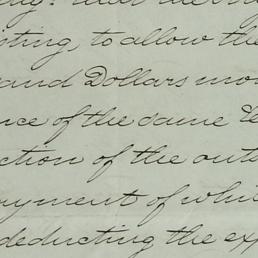 isting, to allow the
and Dollars mo
nce of the same
ction of the out
yment of whi
deducting the exp